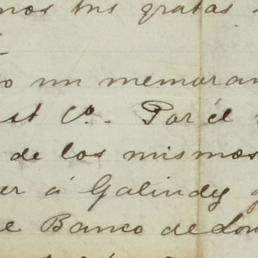 mos tus gratas
o un memoran
st Co. Por él
de los mismos
er á Galindez
e Banco de Lon